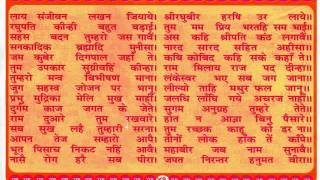 लाय संजीवन लखन जियाये। श्रीरघुबीर हरषि उर लाये॥
रघुपति कीन्ही बहुत बड़ाई। तुम मम प्रिय भरतहि सम भाई॥
सहस बदन तुम्हरो जस गावैं। अस कहि श्रीपति कंठ लगावैं॥
सनकादिक ब्रह्मादि मुनीसा। नारद सारद सहित अहीसा॥
जम कुबेर दिगपाल जहाँ ते। कबि कोबिद कहि सके कहाँ ते॥
तुम उपकार सुग्रीवहिं कीन्हा। राम मिलाय राज पद दीन्हा॥
तुम्हरो मन्त्र बिभीषन माना। लंकेस्वर भए सब जग जाना॥
जुग सहस्र जोजन पर भानू। लील्यो ताहि मधुर फल जानू॥
प्रभु मुद्रिका मेलि मुख माहीं। जलधि लाँघि गये अचरज नाहीं॥
दुर्गम काज जगत के जेते। सुगम अनुग्रह तुम्हरे तेते॥
राम दुआरे तुम रखवारे। होत न आज्ञा बिनु पैसारे॥
सब सुख लहै तुम्हारी सरना। तुम रच्छक काहू को डर ना॥
आपन तेज सम्हारो आपै। तीनों लोक हाँक तें काँपै॥
भूत पिसाच निकट नहिं आवै। महाबीर जब नाम सुनावै॥
नासै रोग हरै सब पीरा। जपत निरन्तर हनुमत बीरा॥